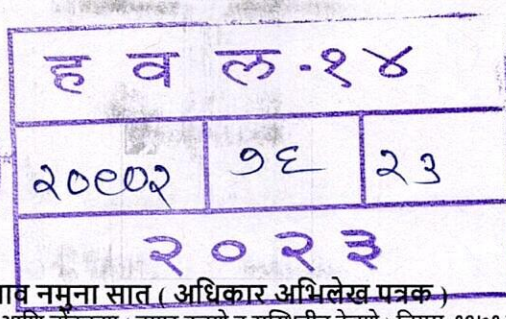 ह व ल-१४
२०९०२ १६ २३
२०२३
गाव नमुना सात ( अधिकार अभिलेख पत्रक )